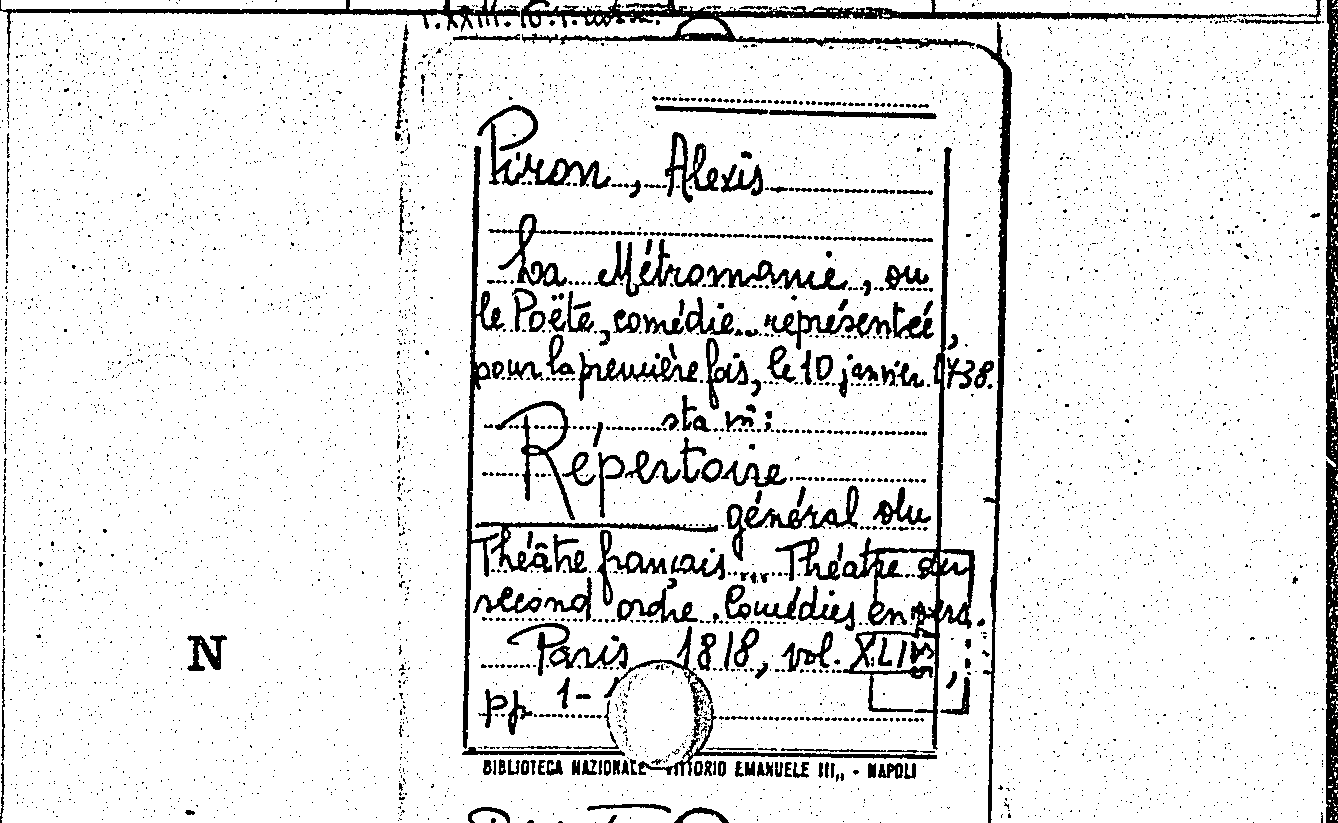 Piron, Alexis
La Métromanie, ou
le Poëte, comédie... représenteé,
pour la première fois, le 10 janvier 1738.
sta in:
Répertoire
général du
Théâtre français... Théatre du
second ordre. Comédies en vers.
Paris 1818, vol. XLI
pp 1-
N
BIBLIOTECA NAZIONALE VITTORIO EMANUELE III,, - NAPOLI